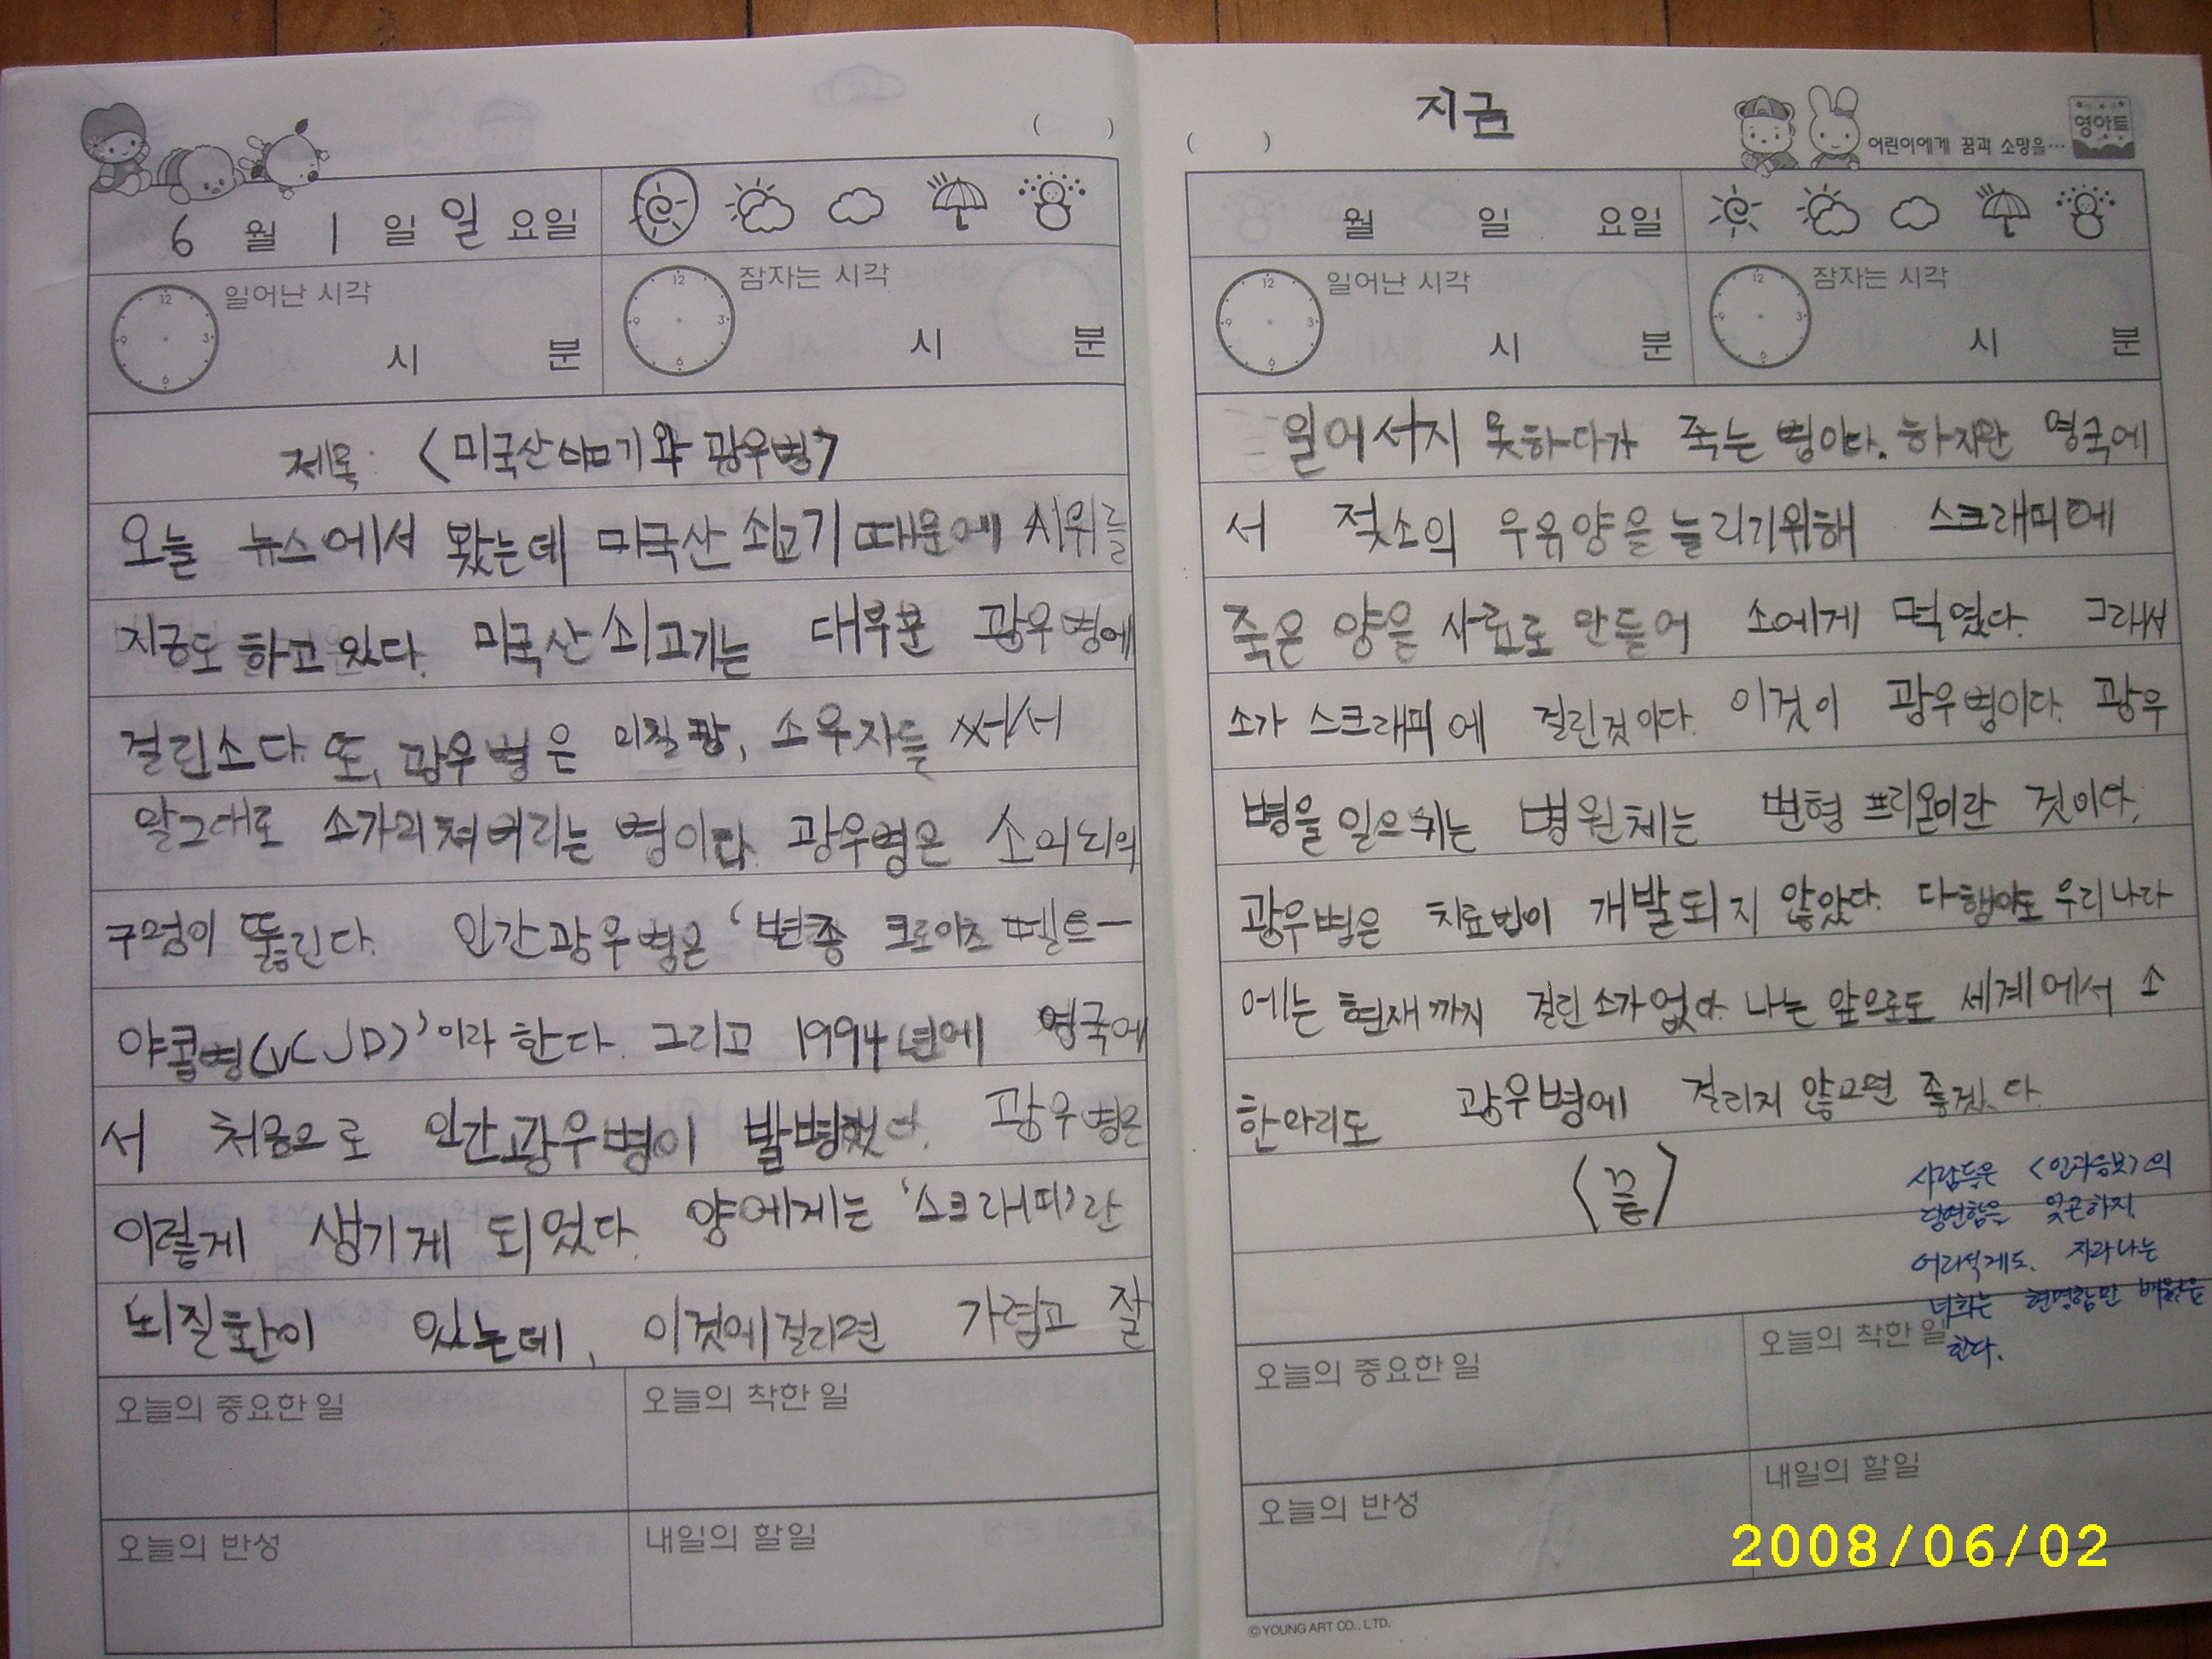 ( )
6 월 1 일 일 요일
일어난 시각
시 분
잠자는 시각
시 분
제목: <미국산 와 광우병>
오늘 뉴스에서 봤는데 미국산 쇠고기 때문에 시위를
지금도 하고 있다. 미국산 쇠고기는 대부분 광우병에
걸린소다. 또, 광우병은 미칠 광, 소우자를 써서
말그대로 소가미쳐버리는 병이다. 광우병은 소의뇌의
구멍이 뚫린다. 인간광우병은 '변종 크로이츠 펠트-
야콥병(vCJD)'이라 한다. 그리고 1994년에 영국에
서 처음으로 인간광우병이 발병했다. 광우병은
이렇게 생기게 되었다. 양에게는 '스크래피'란
뇌질환이 있는데, 이것에걸리면 가렵고 잘
오늘의 중요한 일
오늘의 착한 일
오늘의 반성
내일의 할일
지금
( )
어린이에게 꿈과 소망을…
영아트
월 일 요일
일어난 시각
시 분
잠자는 시각
시 분
일어서지 못하다가 죽는 병이다. 하지만 영국에
서 젖소의 우유양을 늘리기위해 스크래피에
죽은 양을 사료로 만들어 소에게 먹였다. 그래서
소가 스크래피에 걸린것이다. 이것이 광우병이다. 광우
병을 일으키는 병원체는 변형 프리온이란 것이다.
광우병은 치료법이 개발되지 않았다. 다행이도 우리나라
에는 현재까지 걸린 소가 없다. 나는 앞으로도 세계에서 소
한마리도 광우병에 걸리지 않으면 좋겠다.
<끝>
사람들은 <인과응보>의
당연함을 잊곤하지
어리석게도. 자라나는
너희는 현명함만 배웠음
한다.
오늘의 중요한 일
오늘의 착한 일
오늘의 반성
내일의 할일
2008/06/02
©YOUNG ART CO., LTD.